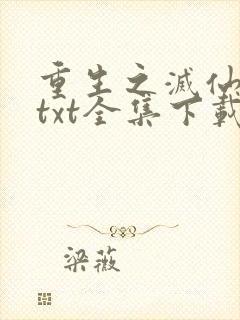 重生之滅仙
txt全集下載
梁薇